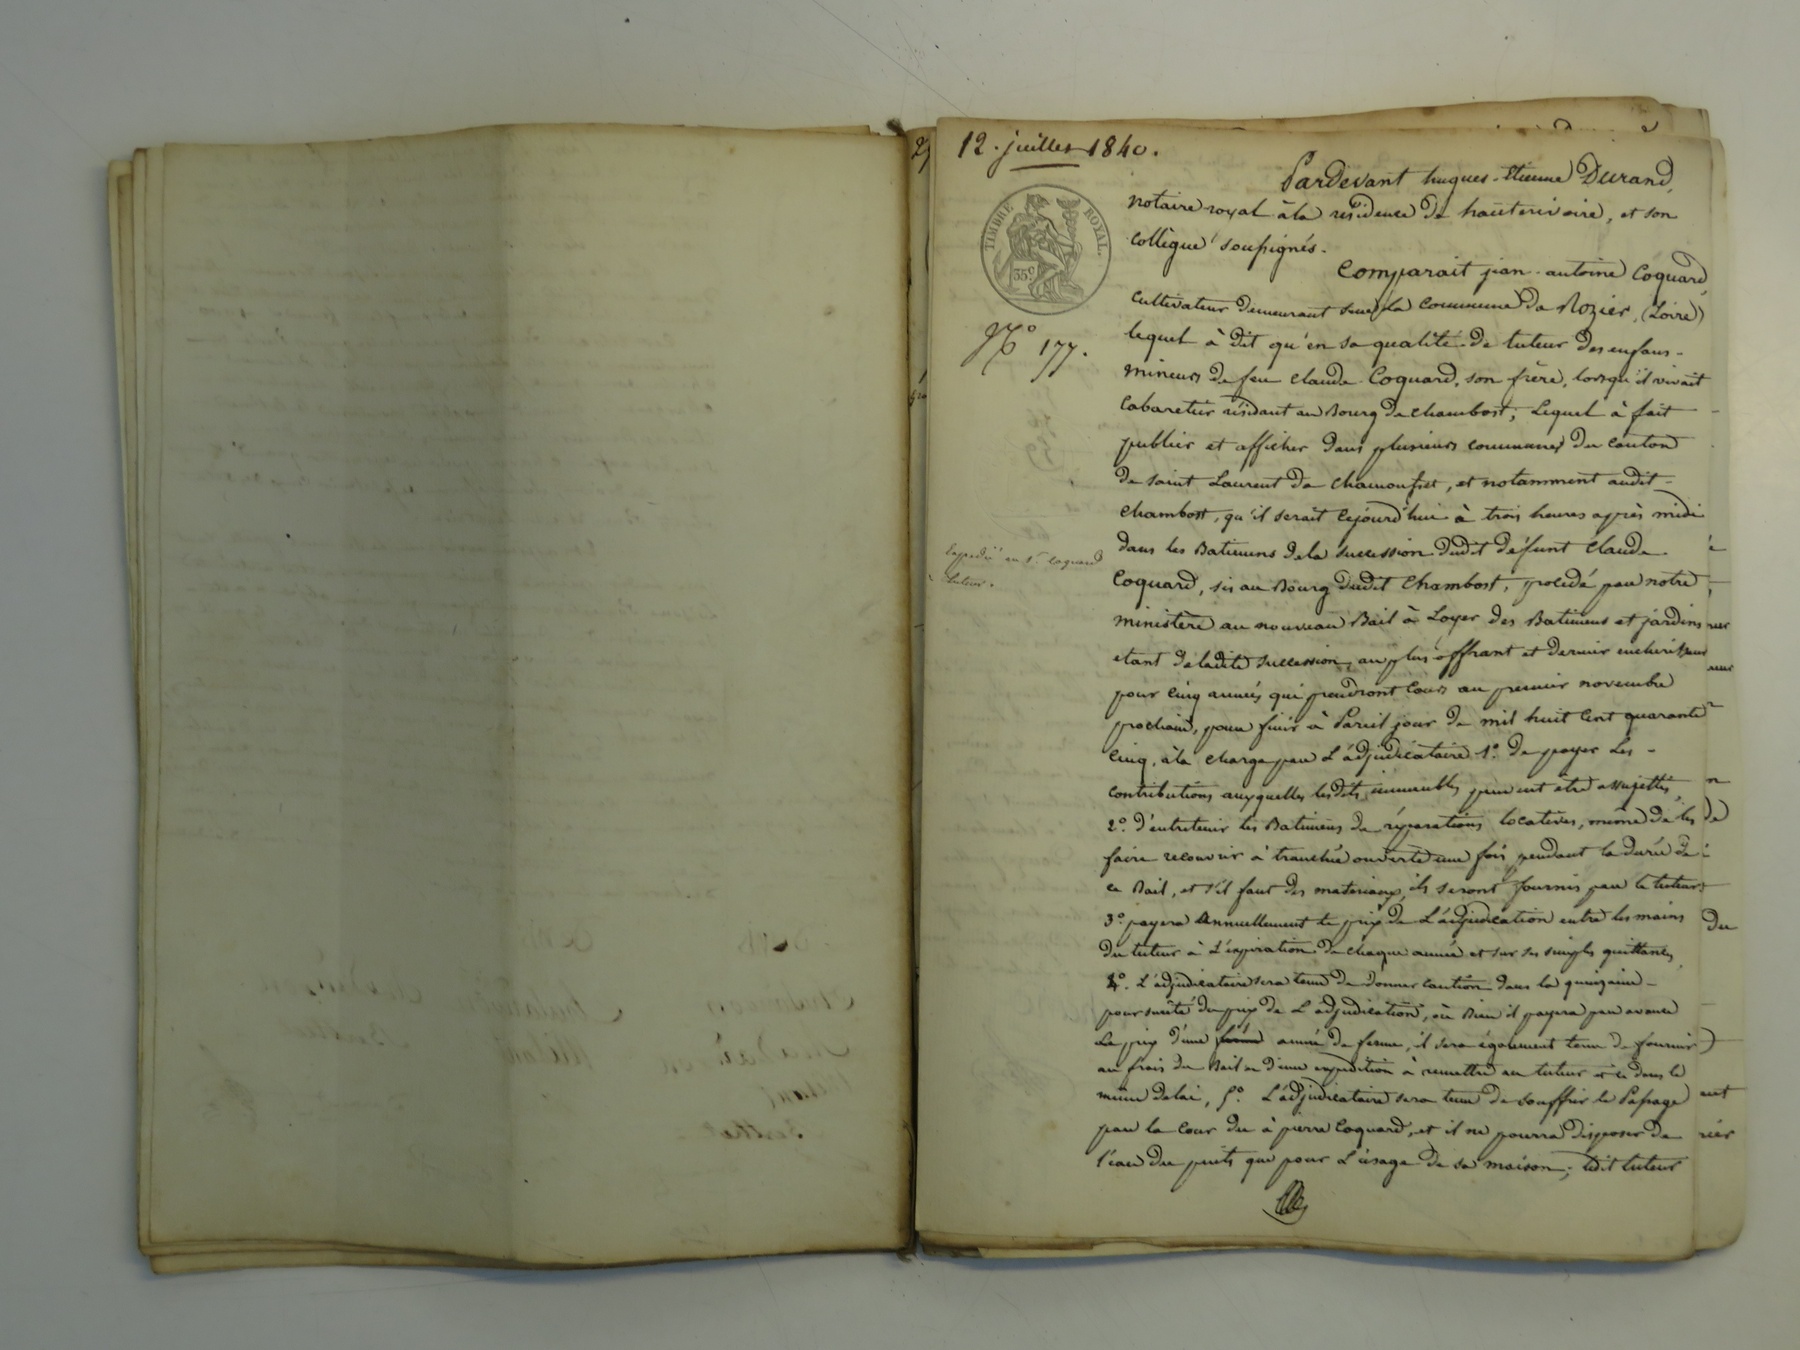 12. juillet 1840.
Pardevant hugues-Etienne Durand,
notaire royal à la résidence de hauterivoire, et son
collègue soussignés.
TIMBRE ROYAL.
35 c
Comparait jean-antoine Coquard,
cultivateur demeurant sur la commune de Rozier, (Loire)
No 177.
lequel à dit qu'en sa qualité de tuteur des enfans
mineurs de feu Claude Coquard, son frère, lorsqu'il vivait
Cabaretier résidant au Bourg de Chambost; Lequel à fait
publier et afficher dans plusieurs communes du canton
de saint Laurent de Chamousset, et notamment audit
Chambost, qu'il serait cejourd'hui à trois heures après midi
dans les Batimens de la succession dudit défunt Claude
Coquard, sis au Bourg dudit Chambost, procédé par notre
Expedié au sr. Coquard
tuteur.
ministère au nouveau Bail à Loyer des Batimens et jardins
etant de ladite succession, au plus offrant et dernier enchérisseur
pour cinq années qui prendront cours au premier novembre
prochain, pour finir à Pareil jour de mil huit cent quarante
cinq, à la charge par L'adjudicataire 1o. de payer Les
contributions auxquelles lesdits immeubles peuvent etre assujettis,
2o. d'entretenir les Batimens de réparations locatives, même de les
faire recouvrir à tranchée ouverte une fois pendant la durée de
ce Bail, et s'il faut des materiaux, ils seront fournis par le tuteur
3o. payera Annuellement le prix de L'adjudication entre les mains
du tuteur à L'expiration de chaque année et sur ses simples quittances,
4o. L'adjudicataire sera tenu de donner caution dans la quinzaine
pour sureté du prix de L'adjudication, où Bien il payera par avance
Le prix d'une année de ferme, il sera également tenu de fournir
au frais du Bail et d'une expédition à remettre au tuteur et ce dans le
même delai, 5o. L'adjudicataire sera tenu de souffrir le Passage
par la Cour du à pierre Coquard, et il ne pourra disposer de
l'eau du puits que pour L'usage de sa maison; ledit tuteur